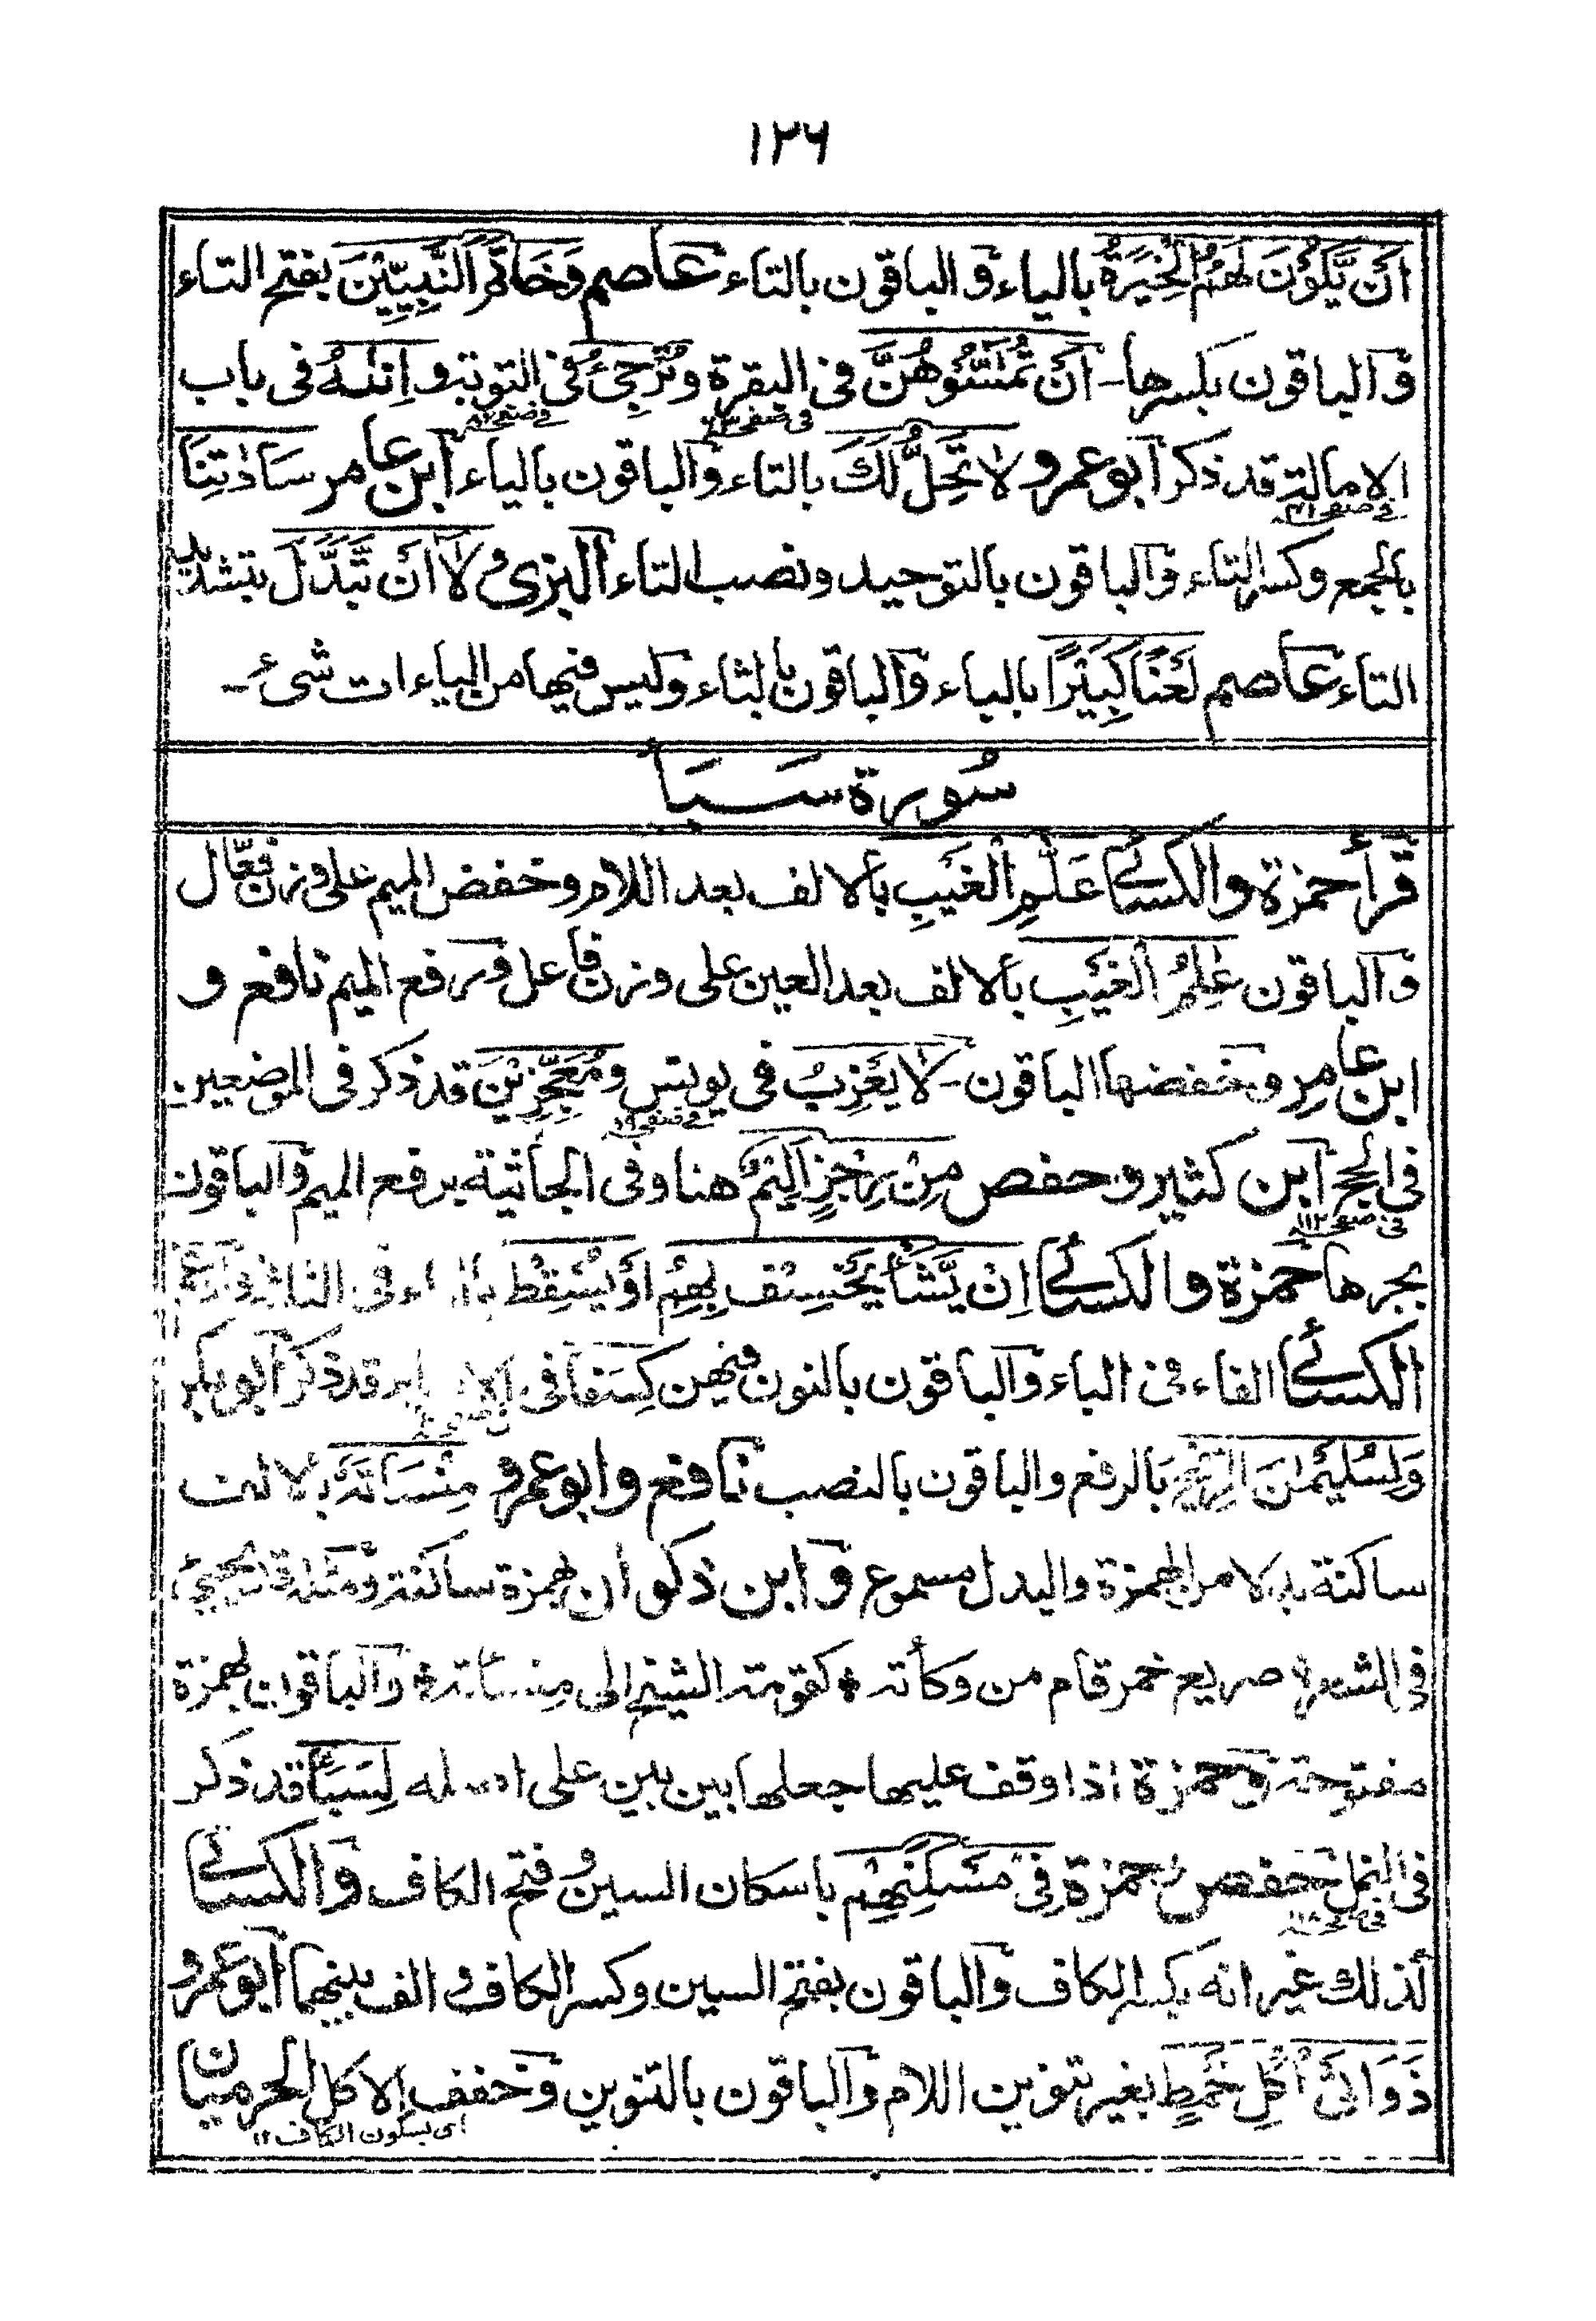 ١٢٦
اَنْ يَّكُوْنَ لَهُمُ الْخِيَرَةُ بالياء و الباقون بالتاء عاصم وَخَاتَمَ النَّبِيّيْنَ بفتح التاء
و الباقون بكسرها - اَنْ تَمَسُّوْهُنَّ فى البقرة و تُرْجِئُ فى التوبة و اِنٰىهُ فى باب
فى صفحه فى صفحه
الامالة قد ذكر ابو عمرو لا تَحِلُّ لَكَ بالتاء و الباقون بالياء ابن عامر سَادٰتِنَا
فى صفحه
بالجمع و كسر التاء و الباقون بالتوحيد و نصب التاء البزى وَلَآ اَنْ تَّبَدَّلَ بتشديد
التاء عاصم لَعْنًا كَبِيْرًا بالباء و الباقون بالثاء وليس فيها من الياءات شىء -
سُورة سَبَأ
قرأ حمزة و الكسائى عَلّٰمِ الْغَيْبِ بألالف بعد اللام و خفض الميم على وزن فعّال
و الباقون عٰلِمُ الْغَيْبِ بألالف بعد العين على وزن فاعل و رفع الميم نافع و
ابن عامر و خفضها الباقون - لَا يَعْزِبُ فى يونس و مُعَجِّزِيْنَ قد ذكر فى الموضعين
فى صفحه ١٩
فى الحج ابن كثير و حفص مِنْ رِجْزٍ اَلِيْمٌ هنا و فى الجاثية برفع الميم و الباقون
فى صفحه ١١٢
بجرها حمزة و الكسائى اِنْ يَّشَأْ يَخْسِفْ بِهِمُ اَوْ يُسْقِطْ بالياء فى الثلاثة و ادغم
الكسائى الفاء فى الباء و الباقون بالنون فيهن كِسَفًا فى قد ذكر ابو بكر
وَلِسُلَيْمٰنَ الرِّيْحُ بالرفع و الباقون بالنصب نافع و ابو عمرو مِنْسَاتَهٗ بالالف
ساكنة بدلا من الهمزة و البدل مسموع و ابن ذكوان بهمزة ساكنة و مثله قد يجئ
فى الشعر صريع خمر قام من وكأته * كقومة الشيخ الى منسأته * و الباقون بهمزة
مفتوحة و حمزة اذا وقف عليها جعلها بين بين على اصله لِسَبَأٍ قد ذكر
فى النمل حفص و حمزة فِىْ مَسْكَنِهِمْ باسكان السين و فتح الكاف و الكسائى
فى صفحه
كذلك غير انه بكسر الكاف و الباقون بفتح السين و كسر الكاف و الف بينهما ابو عمرو
ذَوَاتَىْ اُكُلِ خَمْطٍ بغير تنوين اللام و الباقون بالتنوين و خفف الاكل الحرميان
اى بسكون الكاف ١٢